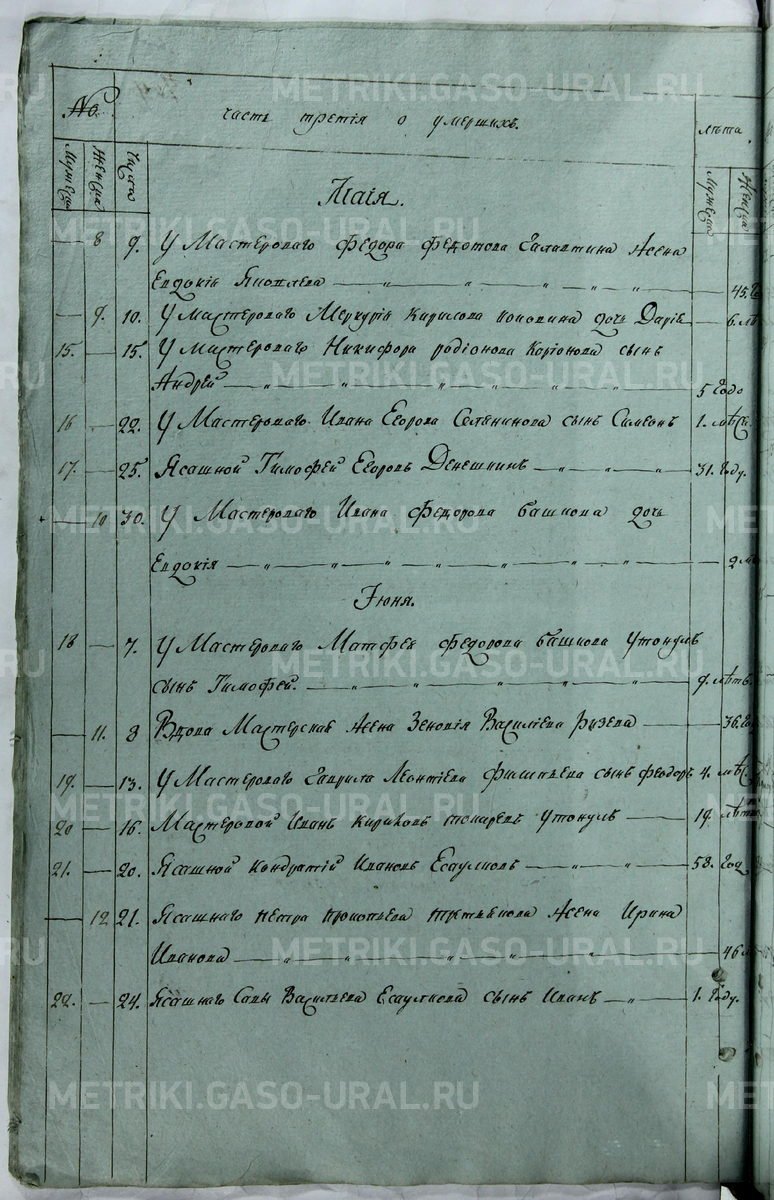 No.
часть третія о умершихъ.
лѣта
Мужеска
Женска
Число
Мужеска
Женска
Маія.
8 9. У Мастероваго Федора Федотова жена
Евдокія Яковлева 45.
9. 10. У Мастероваго Меркурія Кирилова дочь Дарія 6.
15. 15. У Мастероваго Никифора Родіонова Каріонова сынъ
Андрей 5 Годо
16 22. У Мастероваго Ивана Егорова Селянинова сынъ Симеонъ 1.
17. 25. Ясашной Тимофей Егоровъ Денешкинъ 31. Году.
10 30. У Мастероваго Ивана Федорова Башкова дочь
Евдокія 2
Іюня.
18 7. У Мастероваго Матфея Федорова Башкова Утонулъ
сынъ Тимофей. 9. лѣтъ
11. 8 Вдова Мастерская жена Зеновія Василіева 36.
19. 13. У Мастероваго Гаврила Леонтіева сынъ Феодоръ 4.
20 16. Мастеровой Иванъ Утонулъ 19.
21. 20. Ясашной Кондратій Ивановъ Есаулковъ 58. Год
12 21. Ясашнаго Петра Прокопьева жена Ирина
Иванова 46
22. 24. Ясашнаго Савы Васильева Есаулкова сынъ Иванъ 1. Году.
METRIKI.GASO-URAL.RU